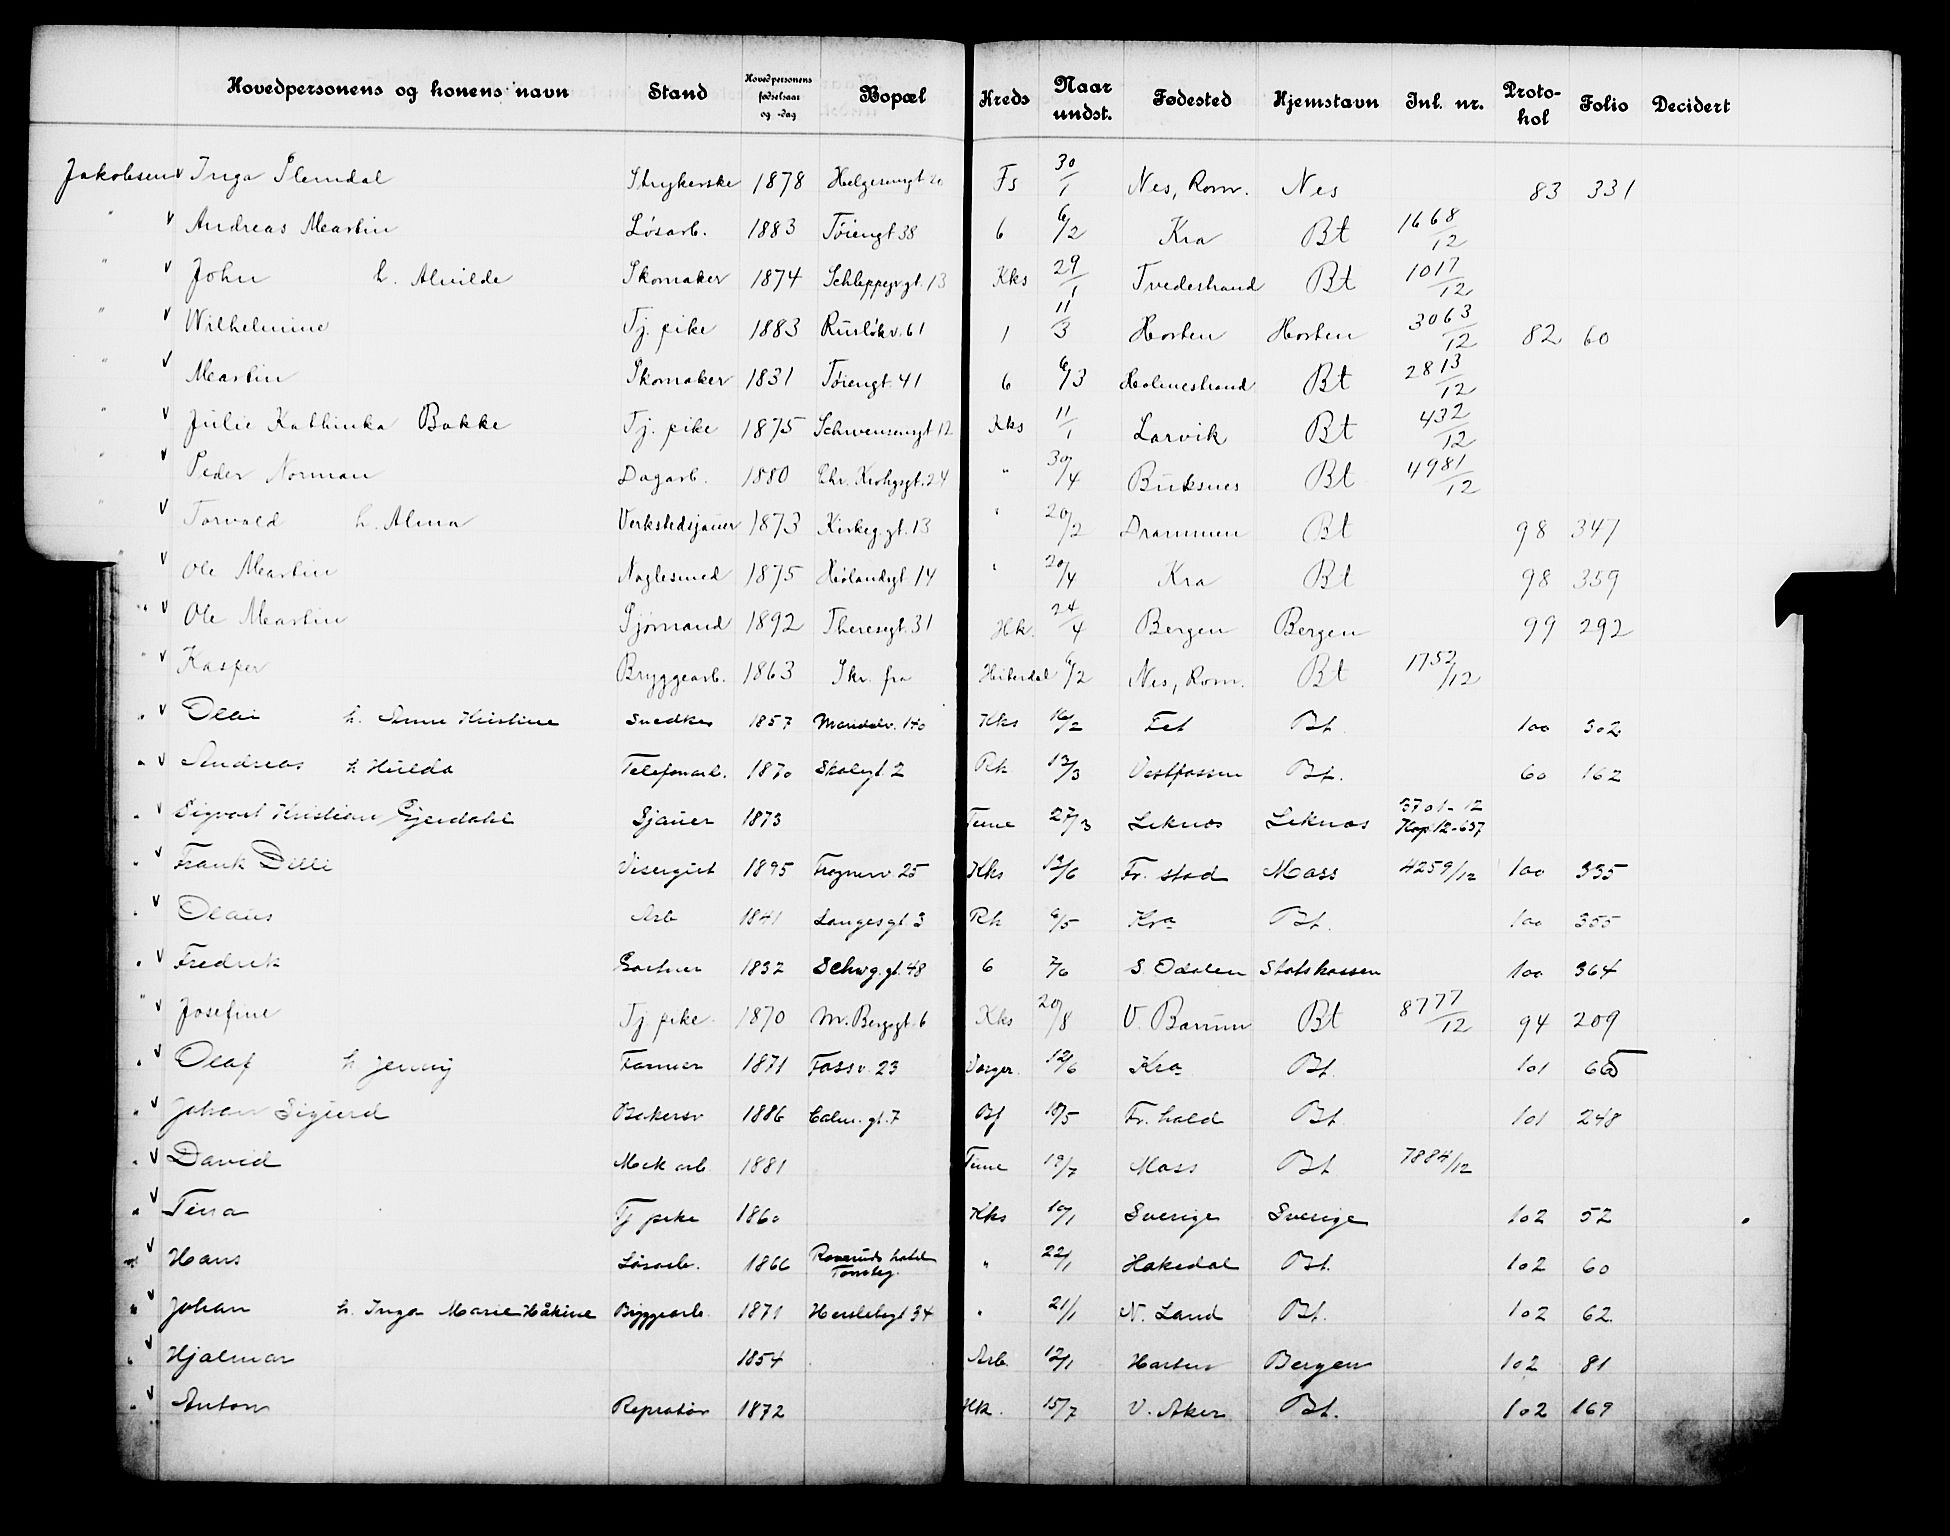 Hovedpersonens og konens navn Stand Hovedpersonens fødselsaar og -dag Bopæl Kreds Naar undst. Fødested Hjemstavn Inl. nr. Protokol Folio Decidert
Jakobsen v Inga Slemdal Strykerske 1878 Helgesensgt 20 Fs 30/1 Nes, Rom. Nes 83 331
" v Andreas Martin Løsarb. 1883 Tøiengt 38 6 6/2 Kra Bt 1668/12
" v John h. Alvilde Skomaker 1874 Schleppegr.gt. 13 Kks 29/1 Tvedestrand Bt 1017/12
" v Wilhelmine Tj. pike 1883 Rusløkv. 61 1 11/3 Horten Horten 3063/12 82 60
" v Martin Skomaker 1831 Tøiengt. 41 6 6/3 Holmestrand Bt 2813/12
" v Julie Kathinka Bakke Tj. pike 1875 Schwensensgt 12 Kks 11/1 Larvik Bt 432/12
" v Peder Norman Dagarb. 1880 Chr. Krohgsgt. 24 " 30/4 Buksnes Bt 4981/12
" v Torvald h. Alma Verkstedsjauer 1873 Kirkeg.gt. 13 " 20/2 Drammen Bt 98 347
" v Ole Martin Naglesmed 1875 Hølandsgt 14 " 20/4 Kra Bt 98 359
" v Ole Martin Sjømand 1892 Theresegt. 31 Hk. 24/4 Bergen Bergen 99 292
" v Kasper Bryggearb. 1863 Skr. fra Hiterdal 6/2 Nes, Rom. Bt 1752/12
" v Olai h. Anne Kristine Snedker 1857 Maridalv. 140 Kks 16/2 Fet Bt. 100 302
" v Andreas h Hulda Telefonarb. 1870 Skolegt. 2 Rk 13/3 Vestfossen Bt. 60 162
" v Sigvart Kristian Gjerdahl Sjauer 1873 Tune 27/3 Leknes Leknes 3701-12 Kop 12-637
" v Frank Dilli Visergut 1895 Fragnerv 25 Kks 13/6 Fr. stad Moss 4259/12 100 335
" v Olaus Arb 1841 Langesgt 3 Rk 6/5 Kra Bt. 100 355
" v Fredrik Gartner 1832 Schwg.gt. 48 6 7/6 S. Odalen Statskassen 100 364
" v Josefine Tj. pike. 1870 M. Bergsgt. 6 Kks 20/8 V. Bærum Bt 8777/12 94 209
" v Olaf h Jenny Farmer 1871 Fossv. 23 Varger. 12/6 Kra Bt. 101 66
" v Johan Sigurd Bakersv 1886 Calm. gt. 7 Bf 18/5 Fr. hald Bt. 101 248
" v David Mek arb 1881 Tune 19/7 Moss Bt 7884/12
" v Tina Tj pike 1860 Kks 10/1 Sverige Sverige 102 52
" v Hans Løsarb. 1866 Roseruds hotel Tomteg. " 22/1 Hakedal Bt. 102 60
" v Johan h. Inga Marie Håkine Byggearb. 1871 Herslebsgt 34 " 21/1 N. Land Bt. 102 62
" v Hjalmar 1854 Arb 12/1 Horten Bergen 102 81
" v Anton Repratør 1872 Hk. 15/7 V. Aker Bt. 102 169